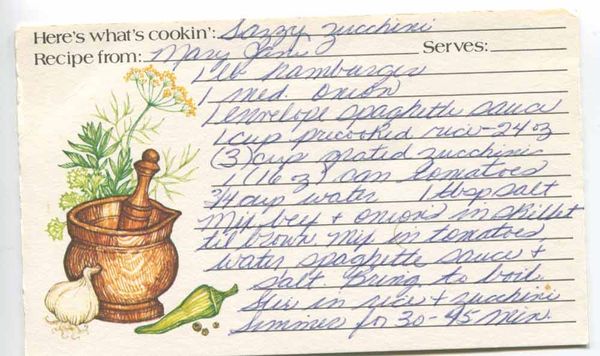 Here's what's cookin': Sazzy zucchini
Recipe from: Mary Jani Serves:
1 lb hamburger
1 med. onion
1 envelope spaghette sauce
1 cup precooked rice - 24 oz
(3) cup grated zucchini
1 (16 oz) can tomatoes
3/4 cup water 1 tbsp salt
Mix beef + onions in skillet
til brown mix in tomatoes
water spaghette sauce +
salt. Bring to boil.
Stir in rice + zucchini
Simmer for 30-45 min.